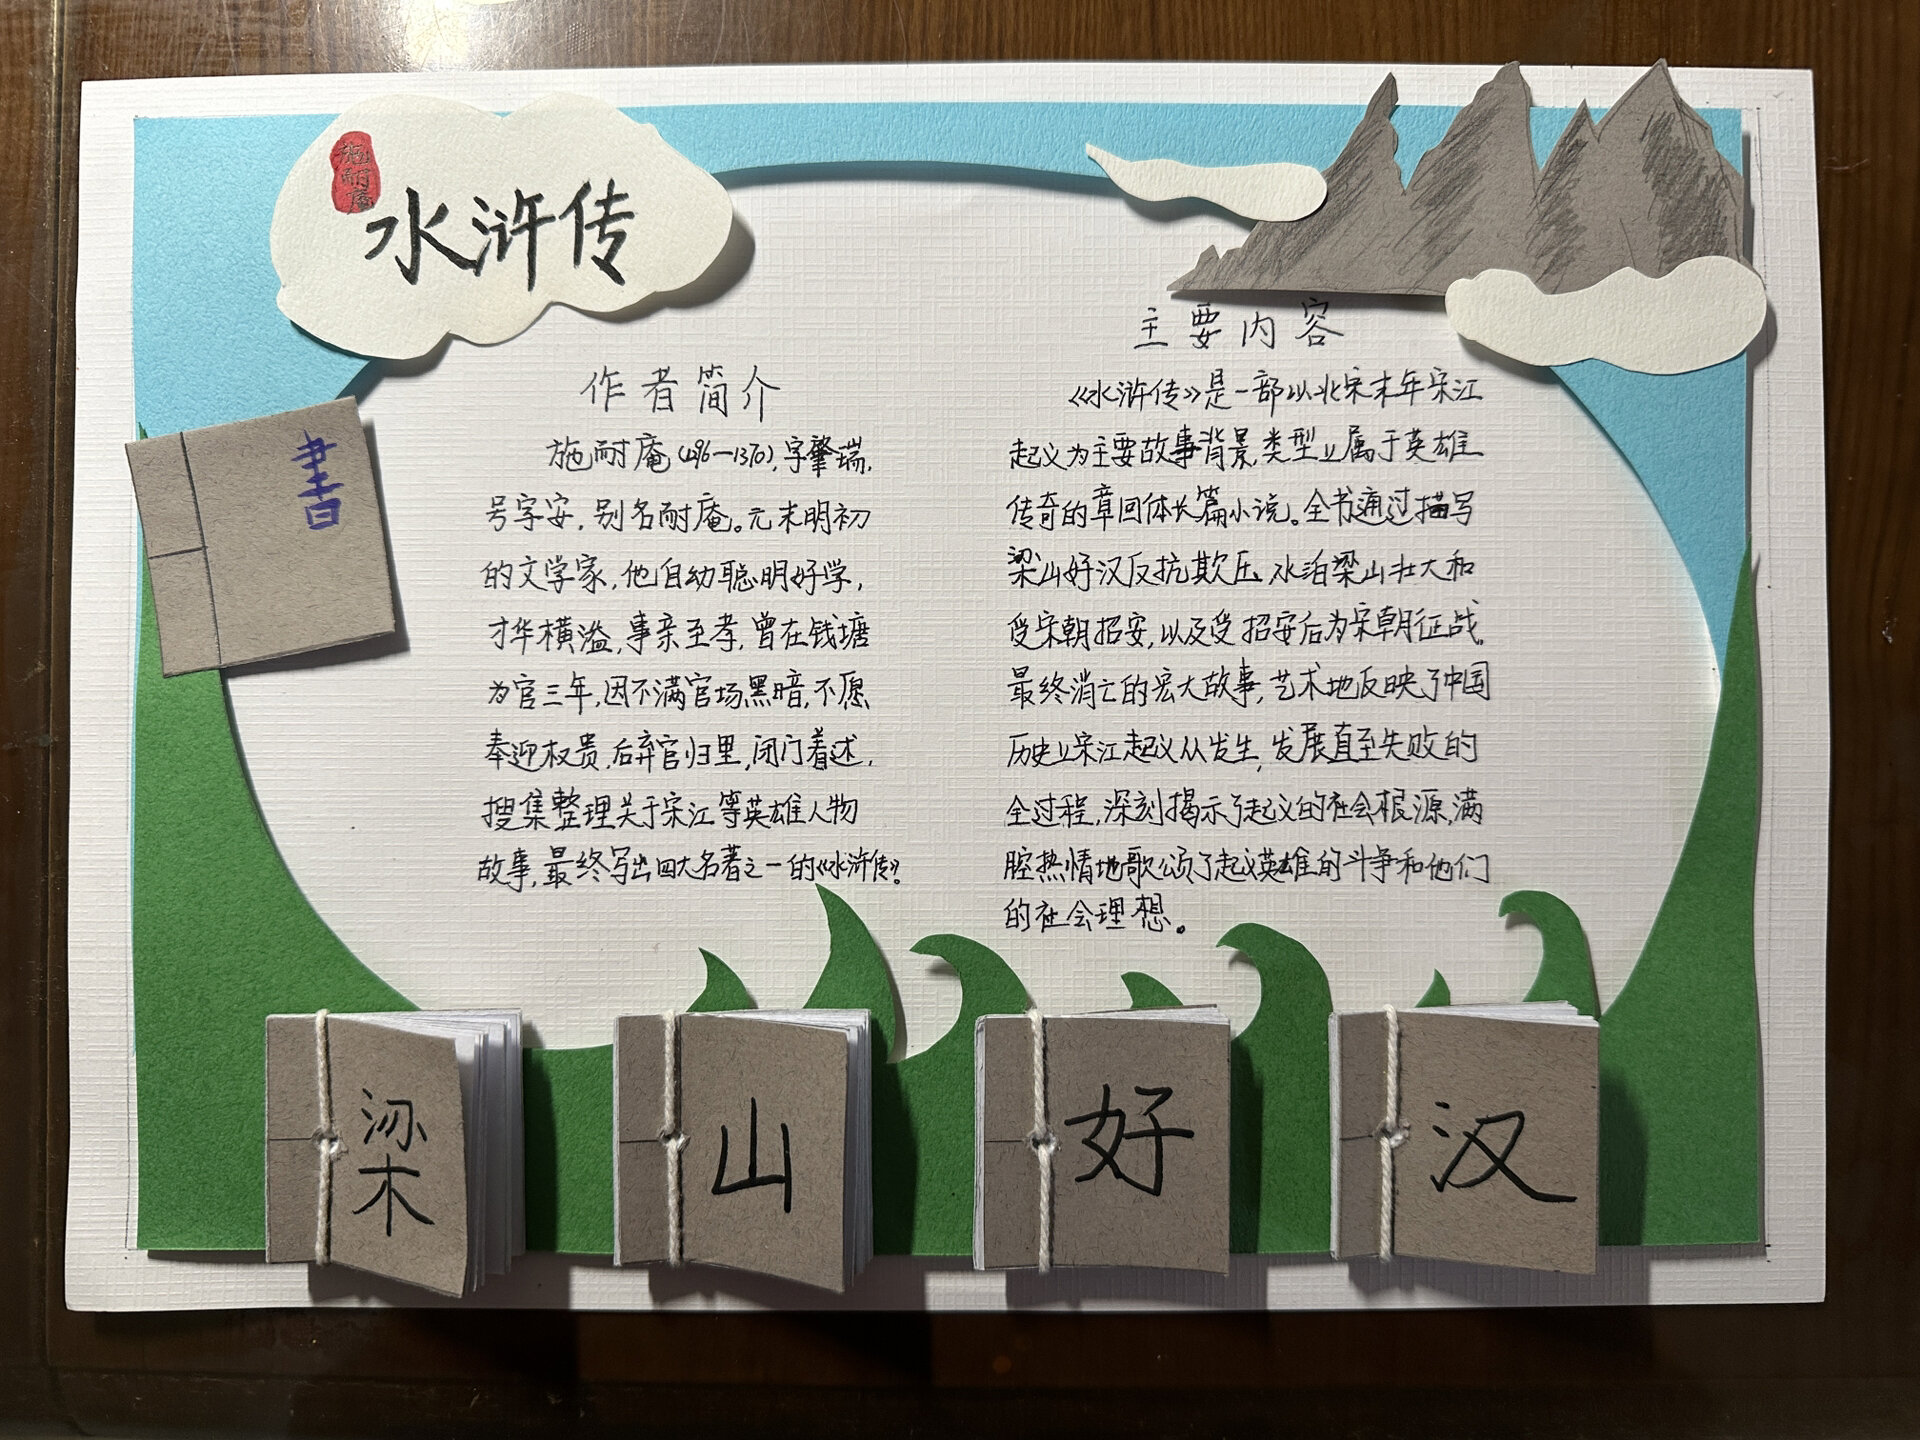 施耐庵
水浒传
作者简介
施耐庵(1296—1370),字肇瑞,
号字安,别名耐庵。元末明初
的文学家,他自幼聪明好学,
才华横溢,事亲至孝,曾在钱塘
为官三年,因不满官场黑暗,不愿
奉迎权贵,后弃官归里,闭门着述,
搜集整理关于宋江等英雄人物
故事,最终写出四大名著之一的《水浒传》。
主要内容
《水浒传》是一部以北宋末年宋江
起义为主要故事背景,类型上属于英雄
传奇的章回体长篇小说。全书通过描写
梁山好汉反抗欺压、水泊梁山壮大和
受宋朝招安,以及受招安后为宋朝征战,
最终消亡的宏大故事,艺术地反映了中国
历史上宋江起义从发生,发展直至失败的
全过程,深刻揭示了起义的社会根源,满
腔热情地歌颂了起义英雄的斗争和他们
的社会理想。
書
梁
山
好
汉